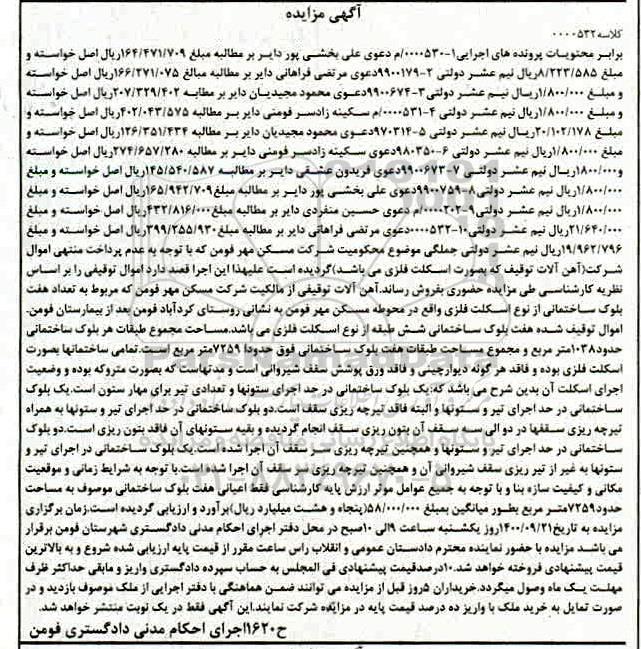 آگهی مزایده
کلاسه۰۰۰۰۵۳۲
برابر محتویات پرونده های اجرایی۱-۰۰۰۰۵۳۰/م دعوی علی بخشی پور دایر بر مطالبه مبلغ ۱۶۴/۴۷۱/۷۰۹ریال اصل خواسته و
مبلغ ۸/۲۲۳/۵۸۵ریال نیم عشر دولتی ۲-۹۹۰۰۱۷۹دعوی مرتضی فراهانی دایر بر مطالبه مبالغ ۱۶۶/۲۷۱/۰۷۵ریال اصل خواسته
و مبلغ ۱/۸۰۰/۰۰۰ریال نیم عشر دولتی۳-۹۹۰۰۶۷۴دعوی محمود مجیدیان دایر بر مطالبه ۲۰۷/۳۲۹/۴۰۲ریال اصل خواسته
و مبلغ ۱/۸۰۰/۰۰۰ریال نیم عشر دولتی ۴-۰۰۰۰۵۳۱/م سکینه زادسر فومنی دایر بر مطالبه ۴۰۲/۰۴۳/۵۷۵ریال اصل خواسته و
مبلغ ۲۰/۱۰۲/۱۷۸ریال نیم عشر دولتی ۵-۹۷۰۳۱۴دعوی محمود مجیدیان دایر بر مطالبه ۱۲۶/۳۵۱/۴۳۴ریال اصل خواسته و
مبلغ ۱/۸۰۰/۰۰۰ریال نیم عشر دولتی ۶-۹۸۰۳۵۰دعوی سکینه زادسر فومنی دایر بر مطالبه ۲۷۴/۶۵۷/۲۸۰ریال اصل خواسته
و۱/۸۰۰۰۰۰ریال نیم عشر دولتی ۷-۹۹۰۰۶۷۳دعوی فریدون عشقی دایر بر مطالبه ۱۴۵/۵۴۰/۵۸۷ریال اصل خواسته و مبلغ
۱/۸۰۰/۰۰۰ریال نیم عشر دولتی۸-۹۹۰۰۷۵۹دعوی علی بخشی پور دایر بر مطالبه مبلغ۱۶۵/۹۴۲/۷۰۹ریال اصل خواسته و مبلغ
۱/۸۰۰/۰۰۰ریال نیم عشر دولتی۹-۰۰۰۰۲۰۲/م دعوی حسین منفردی دایر بر مطالبه مبلغ۴۳۲/۸۱۶/۰۰۰ریال اصل خواسته و مبلغ
۲۱/۶۴۰/۰۰۰ریال نیم عشر دولتی۱۰-۰۰۰۰۵۳۲دعوی مرتضی فراهانی دایر بر مطالبه مبلغ ۳۹۹/۲۵۵/۹۳۰ریال اصل خواسته و مبلغ
۱۹/۹۶۲/۷۹۶ریال نیم عشر دولتی جملگی موضوع محکومیت شرکت مسکن مهر فومن که با توجه به عدم پرداخت منتهی اموال
شرکت(آهن آلات توقیف که بصورت اسکلت فلزی می باشد)گردیده است علیهذا این اجرا قصد دارد اموال توقیفی را بر اساس
نظریه کارشناسی طی مزایده حضوری بفروش رساند.آهن آلات توقیفی از مالکیت شرکت مسکن مهر فومن که مربوط به تعداد هفت
بلوک ساختمانی از نوع اسکلت فلزی واقع در محوطه مسکن مهر فومن به نشانی روستای کردآباد فومن بعد از بیمارستان فومن.
اموال توقیف شده هفت بلوک ساختمانی شش طبقه از نوع اسکلت فلزی می باشد.مساحت مجموع طبقات هر بلوک ساختمانی
حدود۱۰۳۸متر مربع و مجموع مساحت طبقات هفت بلوک ساختمانی فوق حدودا ۷۲۵۹متر مربع است.تمامی ساختمانها بصورت
اسکلت فلزی بوده و فاقد هر گونه دیوارچینی و فاقد ورق پوشش سقف شیروانی است و مدتهاست که بصورت متروکه بوده و وضعیت
اجرای اسکلت آن بدین شرح می باشد که:یک بلوک ساختمانی در حد اجرای ستونها و تعدادی تیر برای مهار ستون است.یک بلوک
ساختمانی در حد اجرای تیر و ستونها و البته فاقد تیرچه ریزی سقف است.دو بلوک ساختمانی در حد اجرای تیر و ستونها به همراه
تیرچه ریزی سقفها در دو الی سه سقف آن بتون ریزی سقف انجام گردیده و بقیه ستونهای آن فاقد بتون ریزی است.دو بلوک
ساختمانی در حد اجرای تیر و ستونها و همچنین تیرچه ریزی سر سقف آن اجرا شده است.یک بلوک ساختمانی در اجرای تیر و
ستونها به غیر از تیر ریزی سقف شیروانی آن و همچنین تیرچه ریزی سر سقف آن اجرا شده است.با توجه به شرایط زمانی و موقعیت
مکانی و کیفیت سازه بنا و با توجه به جمیع عوامل موثر ارزش پایه کارشناسی فقط اعیانی هفت بلوک ساختمانی موصوف به مساحت
حدود۷۲۵۹متر مربع بطور میانگین بمبلغ ۵۸/۰۰۰/۰۰۰(پنجاه و هشت میلیارد ریال)برآورد و ارزیابی گردیده است.زمان برگزاری
مزایده به تاریخ۱۴۰۰/۰۹/۲۱روز یکشنبه ساعت ۹الی ۱۰صبح در محل دفتر اجرای احکام مدنی دادگستری شهرستان فومن برقرار
می باشد مزایده با حضور نماینده محترم دادستان عمومی و انقلاب راس ساعت مقرر از قیمت پایه ارزیابی شده شروع و به بالاترین
قیمت پیشنهادی فروخته خواهد شد.۱۰درصدقیمت پیشنهادی فی المجلس به حساب سپرده دادگستری واریز و مابقی حداکثر ظرف
مهلت یک ماه وصول میگردد.خریداران ۵روز قبل از مزایده می توانند ضمن هماهنگی با دفتر اجرایی از ملک موصوف بازدید و در
صورت تمایل به خرید ملک با واریز ده درصد قیمت پایه در مزایده شرکت نمایند.این آگهی فقط در یک نوبت منتشر خواهد شد.
ح۱۶۲۰اجرای احکام مدنی دادگستری فومن